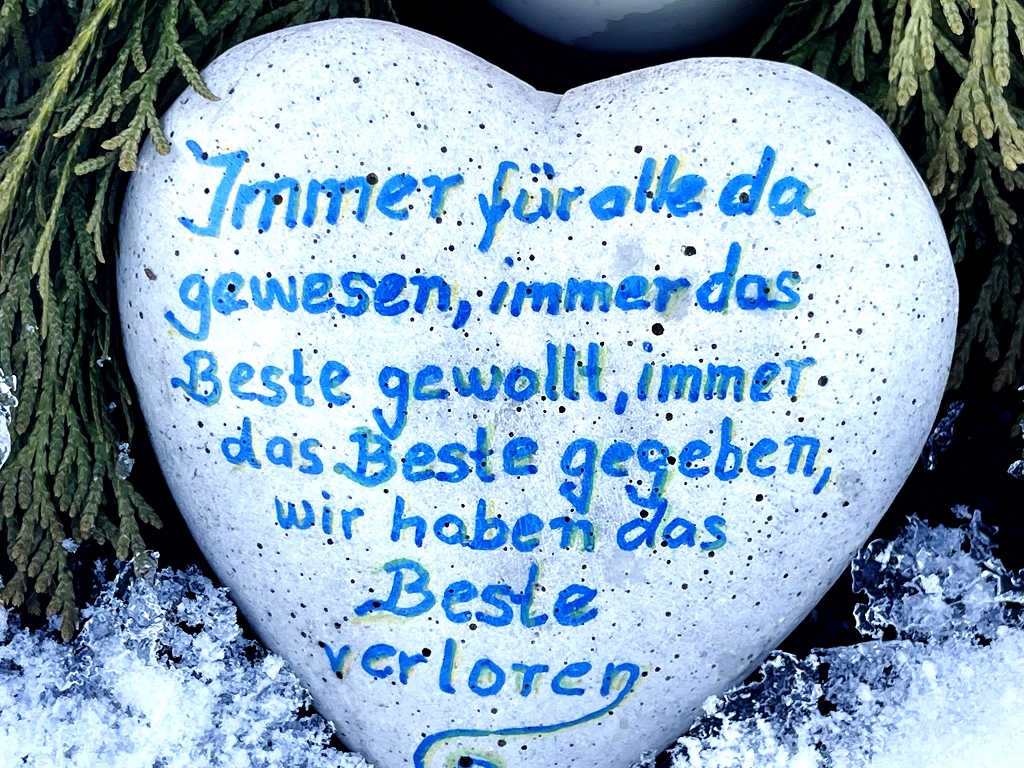 Immer für alle da
gewesen, immer das
Beste gewollt, immer
das Beste gegeben,
wir haben das
Beste
verloren